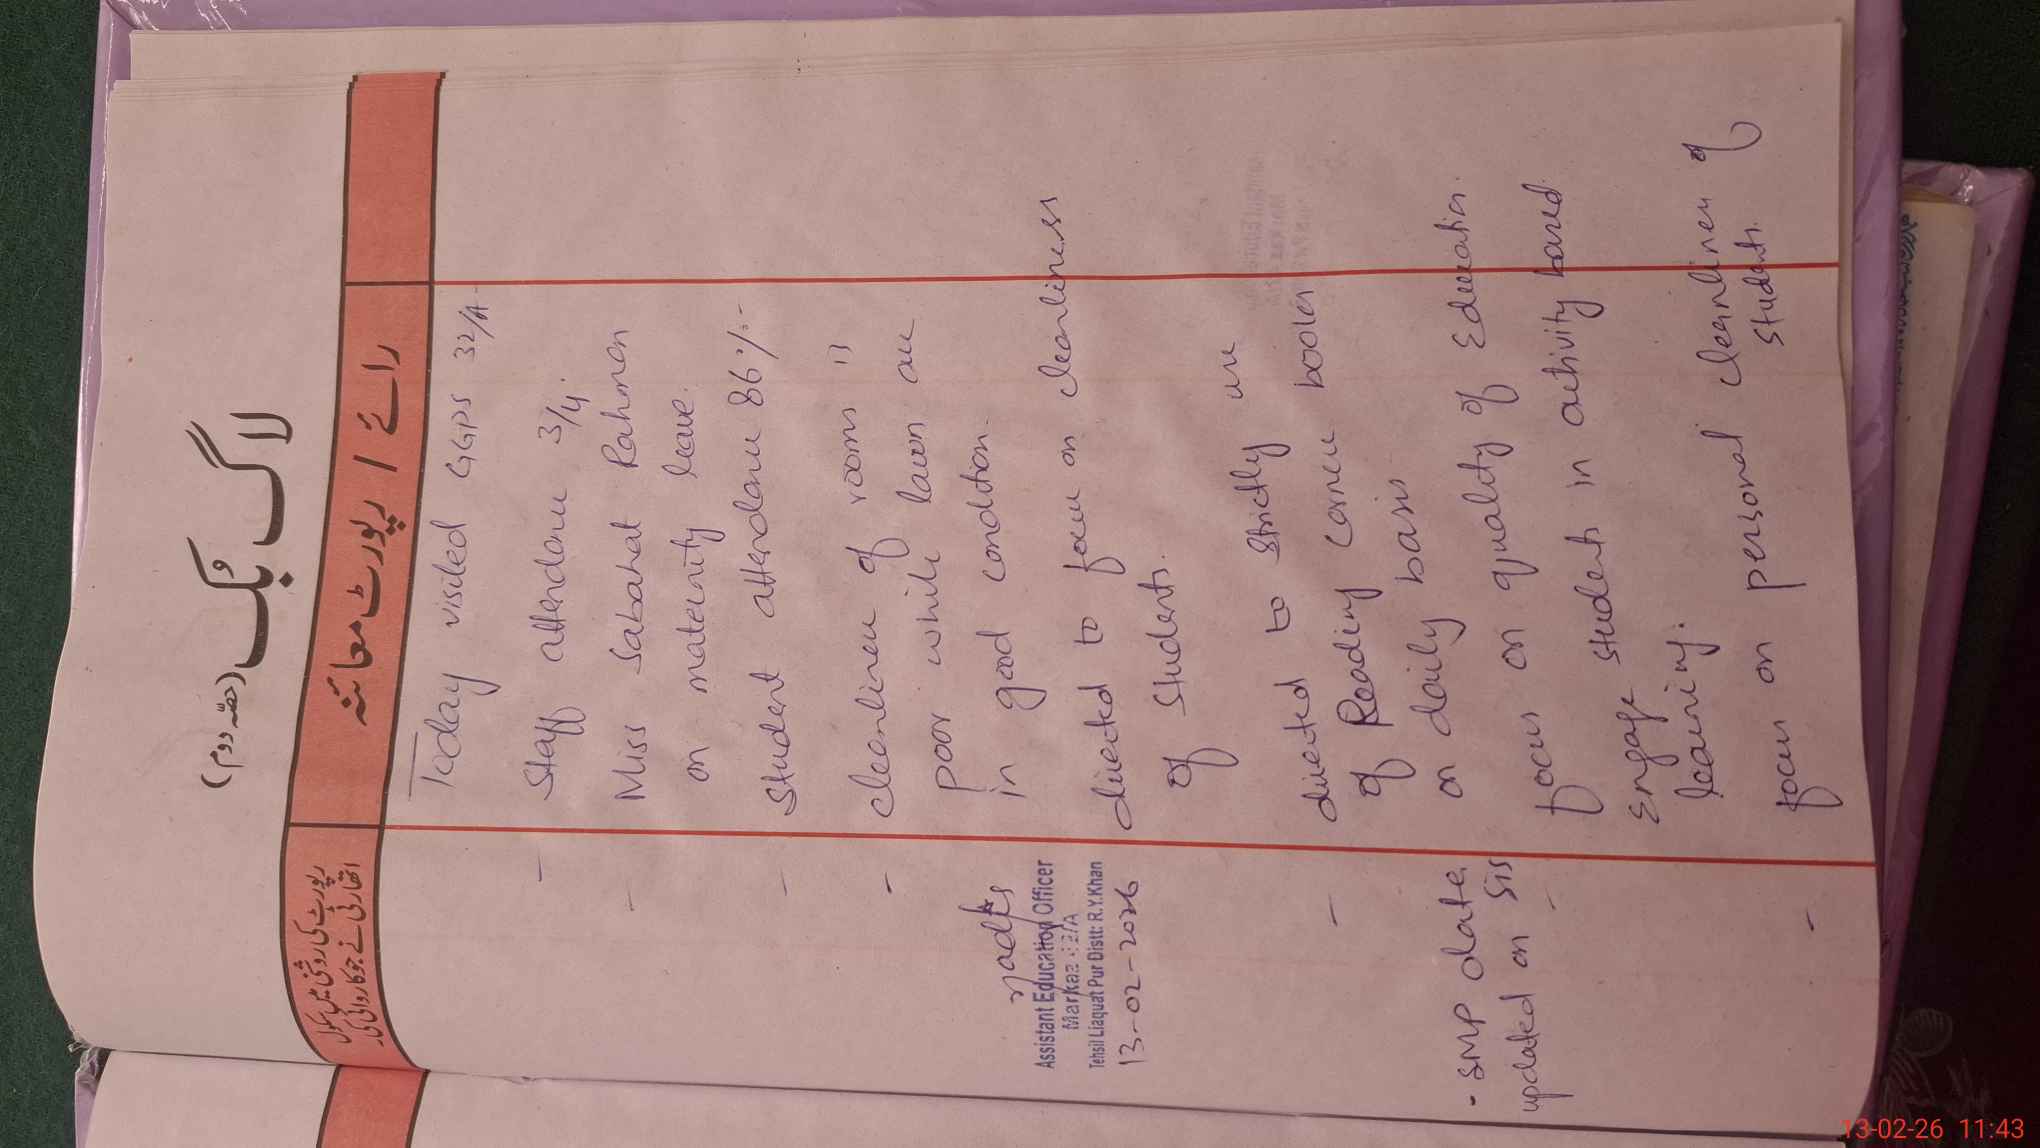 لاگ بُک (حصّہ دوم)
رائے / رپورٹ معائنہ
رپورٹ کی روشنی میں سکول
اتھارٹی نے جو کاروائی کی
Today visited GGPS 32/A-
- Staff attendance 3/4.
- Miss Sabahat Rahman
on maternity leave.
- Student attendance 86%:-
- cleanliness of rooms is
poor while lawn are
in good condition.
directed to focus on cleanliness
of students.
- directed to strictly use
of Reading corner books
on daily basis
- focus on quality of Education.
Engage students in activity based
learning.
- focus on personal cleanliness of
students.
Assistant Education Officer
Markaz 32/A
Tehsil Liaquat Pur Distt: R.Y.Khan
13-02-2026
- SMP date
updated on SIS
13-02-26 11:43